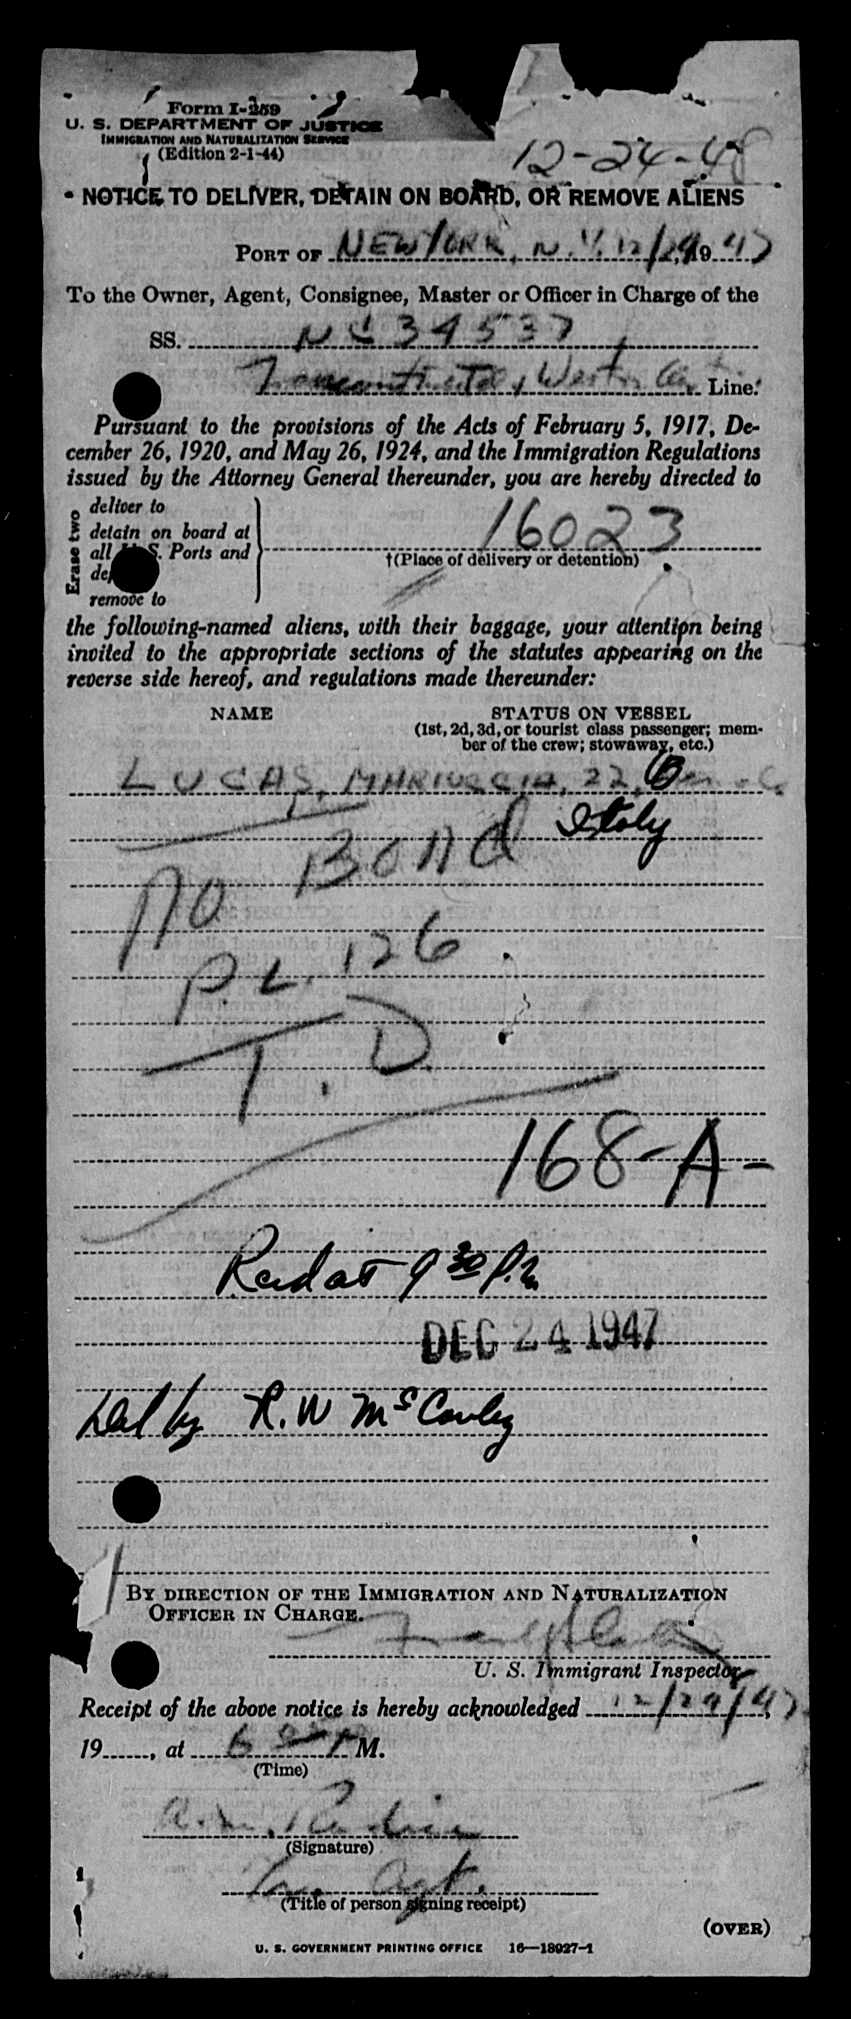 Form I-259
U. S. DEPARTMENT OF JUSTICE
IMMIGRATION AND NATURALIZATION SERVICE
(Edition 2-1-44)
12-24-48
NOTICE TO DELIVER, DETAIN ON BOARD, OR REMOVE ALIENS
PORT OF NEW YORK, N.Y. 12/24, 1947
To the Owner, Agent, Consignee, Master or Officer in Charge of the
SS. NC 34537
Transcontinental & Western Air Line.
Pursuant to the provisions of the Acts of February 5, 1917, De-
cember 26, 1920, and May 26, 1924, and the Immigration Regulations
issued by the Attorney General thereunder, you are hereby directed to
Erase two
deliver to
detain on board at
all U.S. Ports and
remove to
16023
†(Place of delivery or detention)
the following-named aliens, with their baggage, your attention being
invited to the appropriate sections of the statutes appearing on the
reverse side hereof, and regulations made thereunder:
NAME STATUS ON VESSEL
(1st, 2d, 3d, or tourist class passenger; mem-
ber of the crew; stowaway, etc.)
LUCAS, MARIUCCIA, 22,
Italy
NO BOND
P.L. 126
T.D.
168-A-
Recd at 9 30 P.M.
DEC 24 1947
Del by R.W McCauley
BY DIRECTION OF THE IMMIGRATION AND NATURALIZATION
OFFICER IN CHARGE.
U. S. Immigrant Inspector
Receipt of the above notice is hereby acknowledged 12/24/47,
19......, at 6 P M.
(Time)
(Signature)
Agt.
(Title of person signing receipt)
(OVER)
U. S. GOVERNMENT PRINTING OFFICE 16—18927-1